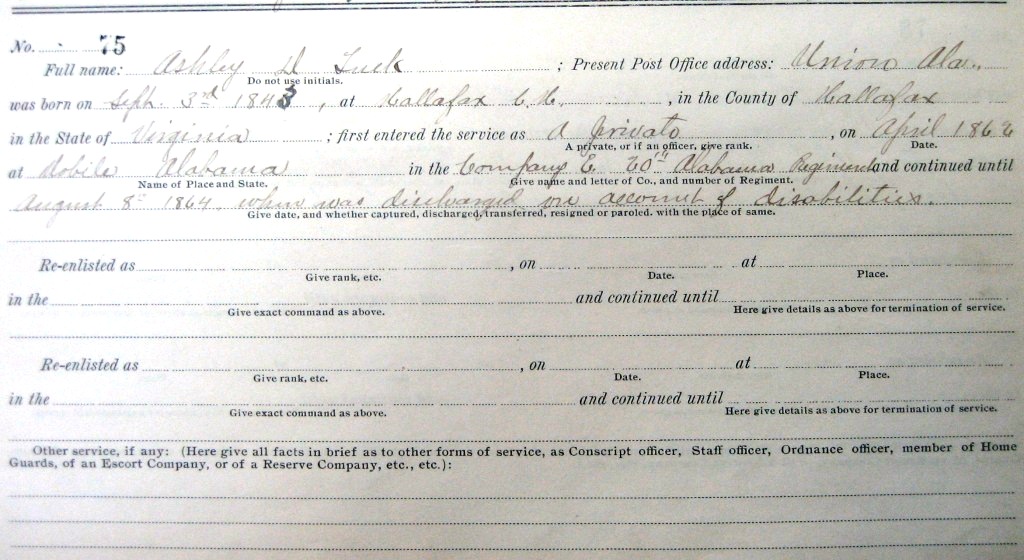 No. 75
Full name: Ashley D Tuck ; Present Post Office address: Union Ala.,
Do not use initials.
was born on Sept. 3rd 1843 , at Hallafax C.H. , in the County of Hallafax
in the State of Virginia ; first entered the service as A Private , on April 1862
A private, or if an officer, give rank. Date.
at Mobile Alabama in the Company E. 20th Alabama Regiment and continued until
Name of Place and State. Give name and letter of Co., and number of Regiment.
August 8th 1864 when was discharged on account of disabilities.
Give date, and whether captured, discharged, transferred, resigned or paroled. with the place of same.
Re-enlisted as , on at
Give rank, etc. Date. Place.
in the and continued until
Give exact command as above. Here give details as above for termination of service.
Re-enlisted as , on at
Give rank, etc. Date. Place.
in the and continued until
Give exact command as above. Here give details as above for termination of service.
Other service, if any: (Here give all facts in brief as to other forms of service, as Conscript officer, Staff officer, Ordnance officer, member of Home
Guards, of an Escort Company, or of a Reserve Company, etc., etc.):